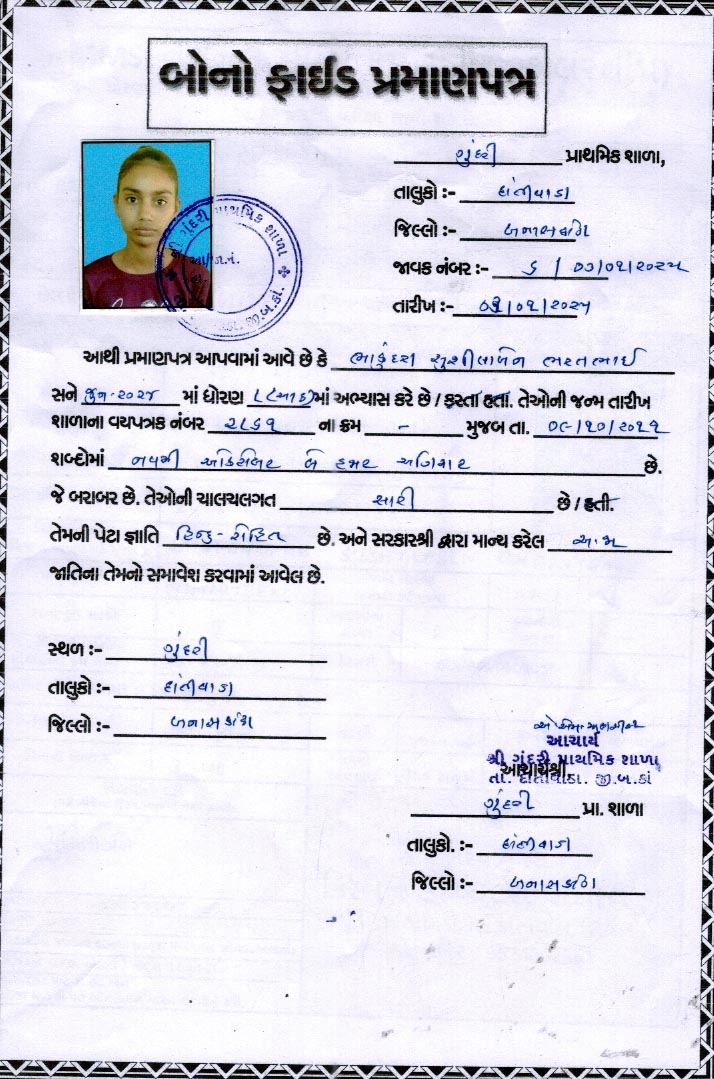 બોનો ફાઈડ પ્રમાણપત્ર
ગુંદરી પ્રાથમિક શાળા,
તાલુકો :- દાંતીવાડા
જિલ્લો :- બનાસકાંઠા
જાવક નંબર :- ૬ / ૦૭/૦૧/૨૦૨૫
તારીખ :- ૦૭/૦૧/૨૦૨૫
શ્રી ગુંદરી પ્રાથમિક શાળા
જી.બ.કાં.
આથી પ્રમાણપત્ર આપવામાં આવે છે કે ભાકુંદરા સુશીલાબેન ભરતભાઈ
સને જુન-૨૦૨૪ માં ધોરણ ૮(આઠ)માં અભ્યાસ કરે છે / કરતા હતાં. તેઓની જન્મ તારીખ
શાળાના વયપત્રક નંબર ૨૮૬૧ ના ક્રમ - મુજબ તા. ૦૯/૧૦/૨૦૧૧
શબ્દોમાં નવમી ઓક્ટોબર બે હજાર અગિયાર છે.
જે બરાબર છે. તેઓની ચાલચલગત સારી છે / હતી.
તેમની પેટા જ્ઞાતિ હિન્દુ-રોહિત છે. અને સરકારશ્રી દ્વારા માન્ય કરેલ અ.જા
જાતિના તેમનો સમાવેશ કરવામાં આવેલ છે.
સ્થળ :- ગુંદરી
તાલુકો :- દાંતીવાડા
જિલ્લો :- બનાસકાંઠા
આચાર્ય
શ્રી ગુંદરી પ્રાથમિક શાળા
આચાર્યશ્રી
તા. દાંતીવાડા. જી.બ.કાં
ગુંદરી પ્રા. શાળા
તાલુકો. :- દાંતીવાડા
જિલ્લો :- બનાસકાંઠા